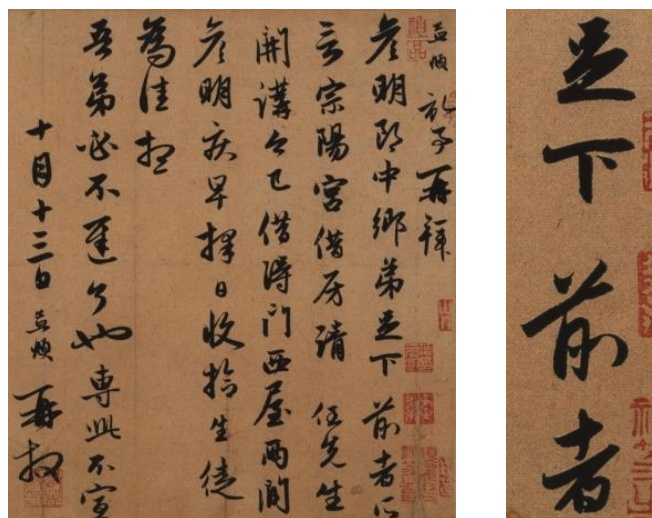 孟頫頓首再拜
彥明郎中鄉弟足下前者所
言宗陽宮借房請任先生
開講今已借得門西屋兩間
彥明疾早擇日收拾生徒
為佳想
吾弟必不遲了也專此不宣
十月十三日孟頫再拜
足下前者